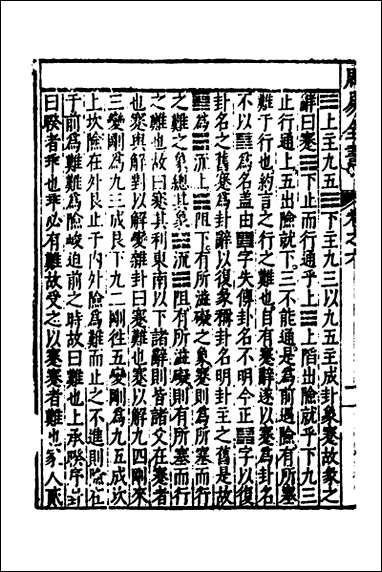 周易全書 卷之六
䷦上主九五䷦下主九三以九五主成卦象蹇故彖之
辭曰蹇☶下止而行通乎上☵上陷出險就乎下九三
止行通上五出險就下三不能通是爲前遇險有所蹇
難于行也約言之行之難也自有蹇辭遂以蹇爲卦名
不以䷦爲名盖由䷦字失傳卦名不明今正䷦字以復
卦名之舊蹇爲卦辭以復彖稱卦名明卦主之舊是故
䷦爲☵沉上☶阻下有所滋礙之象蹇則爲有所蹇而行
之難之彖總其象☵沉☶阻有所滋礙則有所蹇而行
之難也故曰蹇其利東南以下諸辭則皆諸爻在蹇者
也蹇與解對以解變雜卦曰蹇難也蹇以解九四剛來
三變剛爲九三成艮下九二剛往五變剛爲九五成坎
上坎險在外艮止于内外險爲難而止之不進則險在
于前爲難難爲險峻迫前之時故曰難也上承睽序卦
曰睽者乖也乖必有難故受之以蹇蹇者難也家人貳